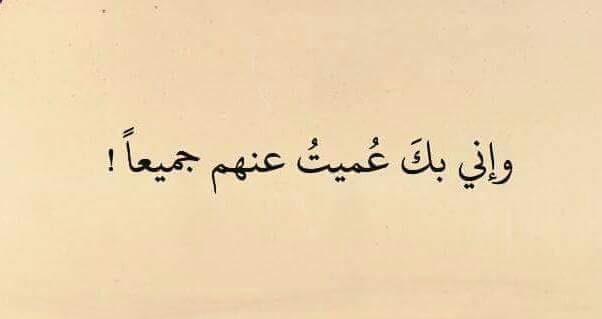 وإني بكَ عُميتُ عنهم جميعاً !